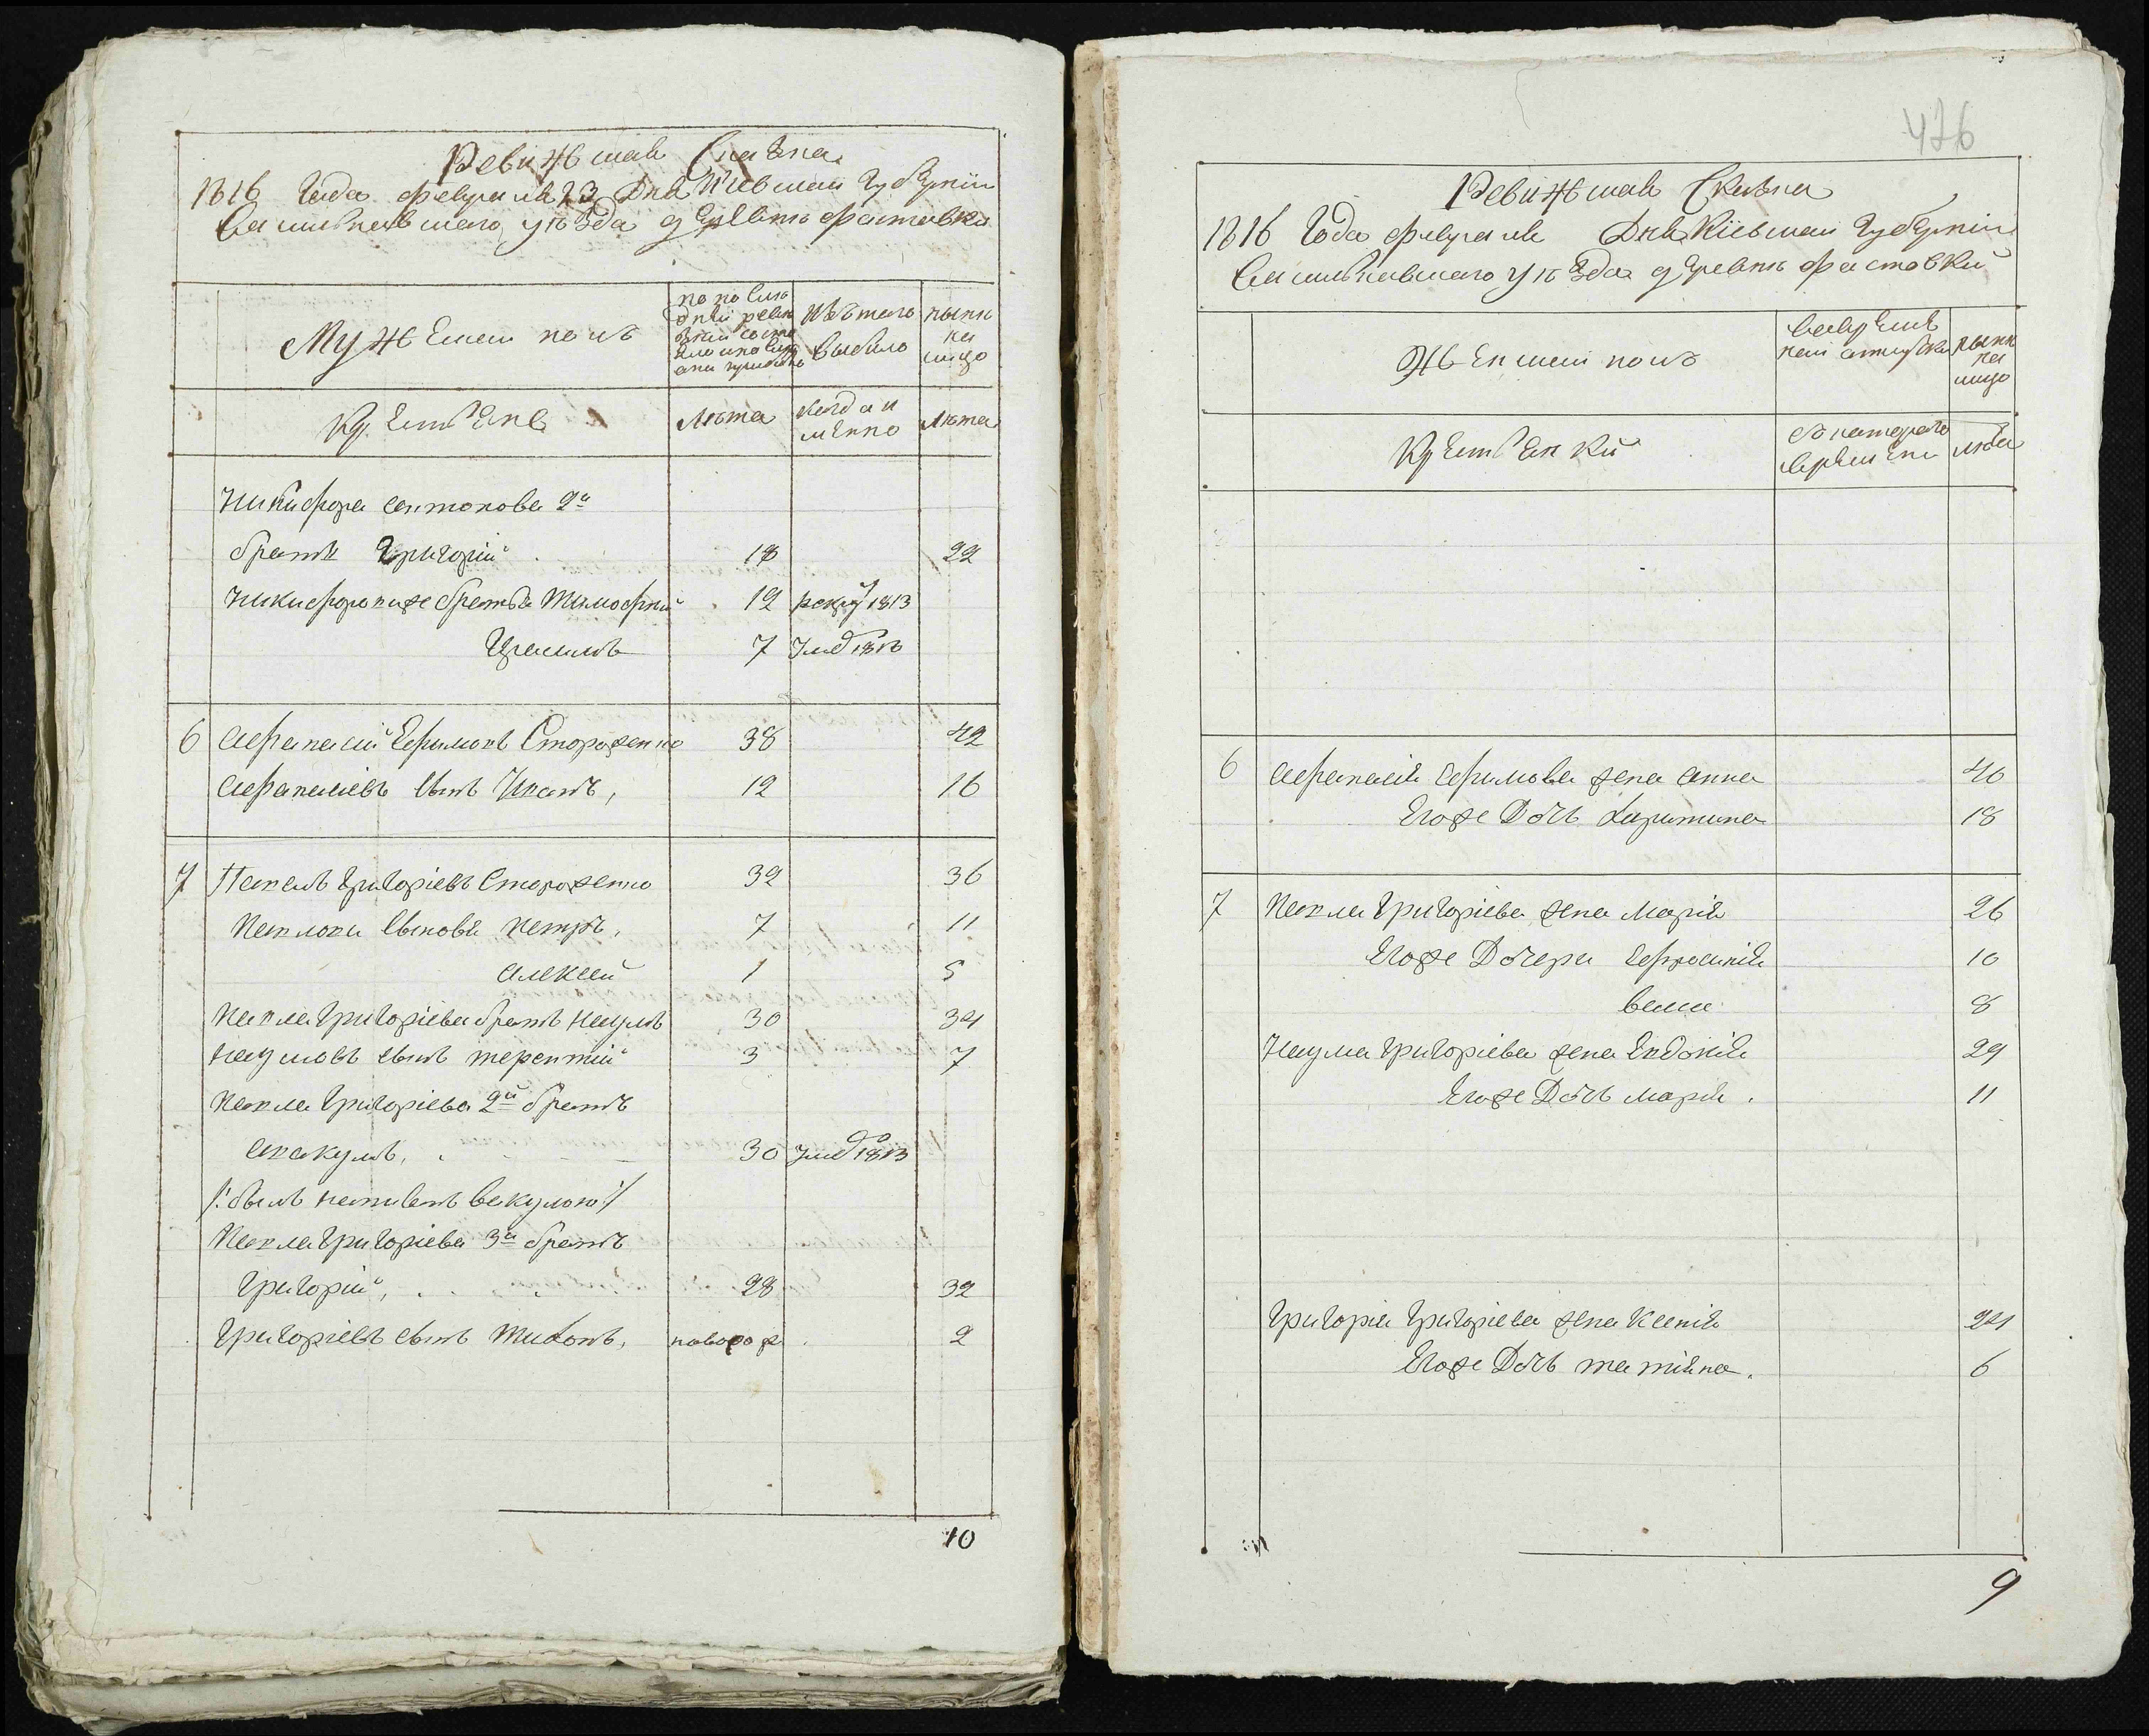 Ревижская Сказка
1816 Года февраля 23 Дня Киевской Губернии
Васильковского уѣзда деревни Фастовки
Мужеский полъ
по последней ревизии состояло и после оной прибыло
Изъ того выбыло
нынѣ на лицо
Крестьяне
Лѣта
когда именно
Лѣта
Никифора Антонова 2й
братъ Григорій 18 22
Никифоровы же братья Тимофей 12 рекру 1813
Герасимъ 7
6 Афанасий Ефимовъ Стороженко 38 42
Афанасіевъ сынъ Иванъ, 12 16
7 Павелъ Григоріевъ Стороженко 32 36
Павловы сыновья Петръ, 7 11
Алексей 1 5
Павла Григоріева братъ Наумъ 30 34
Наумовъ сынъ Терентій 3 7
Павла Григоріева 2й братъ
Авакумъ, 30 Умеръ 1813
/: былъ написанъ Вакулою :/
Павла Григоріева 3й братъ
Григорій, 28 32
Григоріевъ сынъ Тихонъ, новорож 2
10
476
Ревижская Сказка
1816 Года февраля Дня Кіевской Губерніи
Васильковского уѣзда деревни Фастовки
Женский полъ
Во временной отлучке
нынѣ на лицо
Крестьянки
Съ котораго времени
лѣта
6 Афанасія Ефимова жена Анна 40
Егоже Дочь Харитина 18
7 Павла Григоріева жена Марія 26
Егоже Дочери Ефросинія 10
8
Наума Григоріева жена Евдокія 29
Егоже Дочь Марія. 11
Григорія Григоріева жена Ксенія 24
Егоже Дочь Татіяна. 6
9